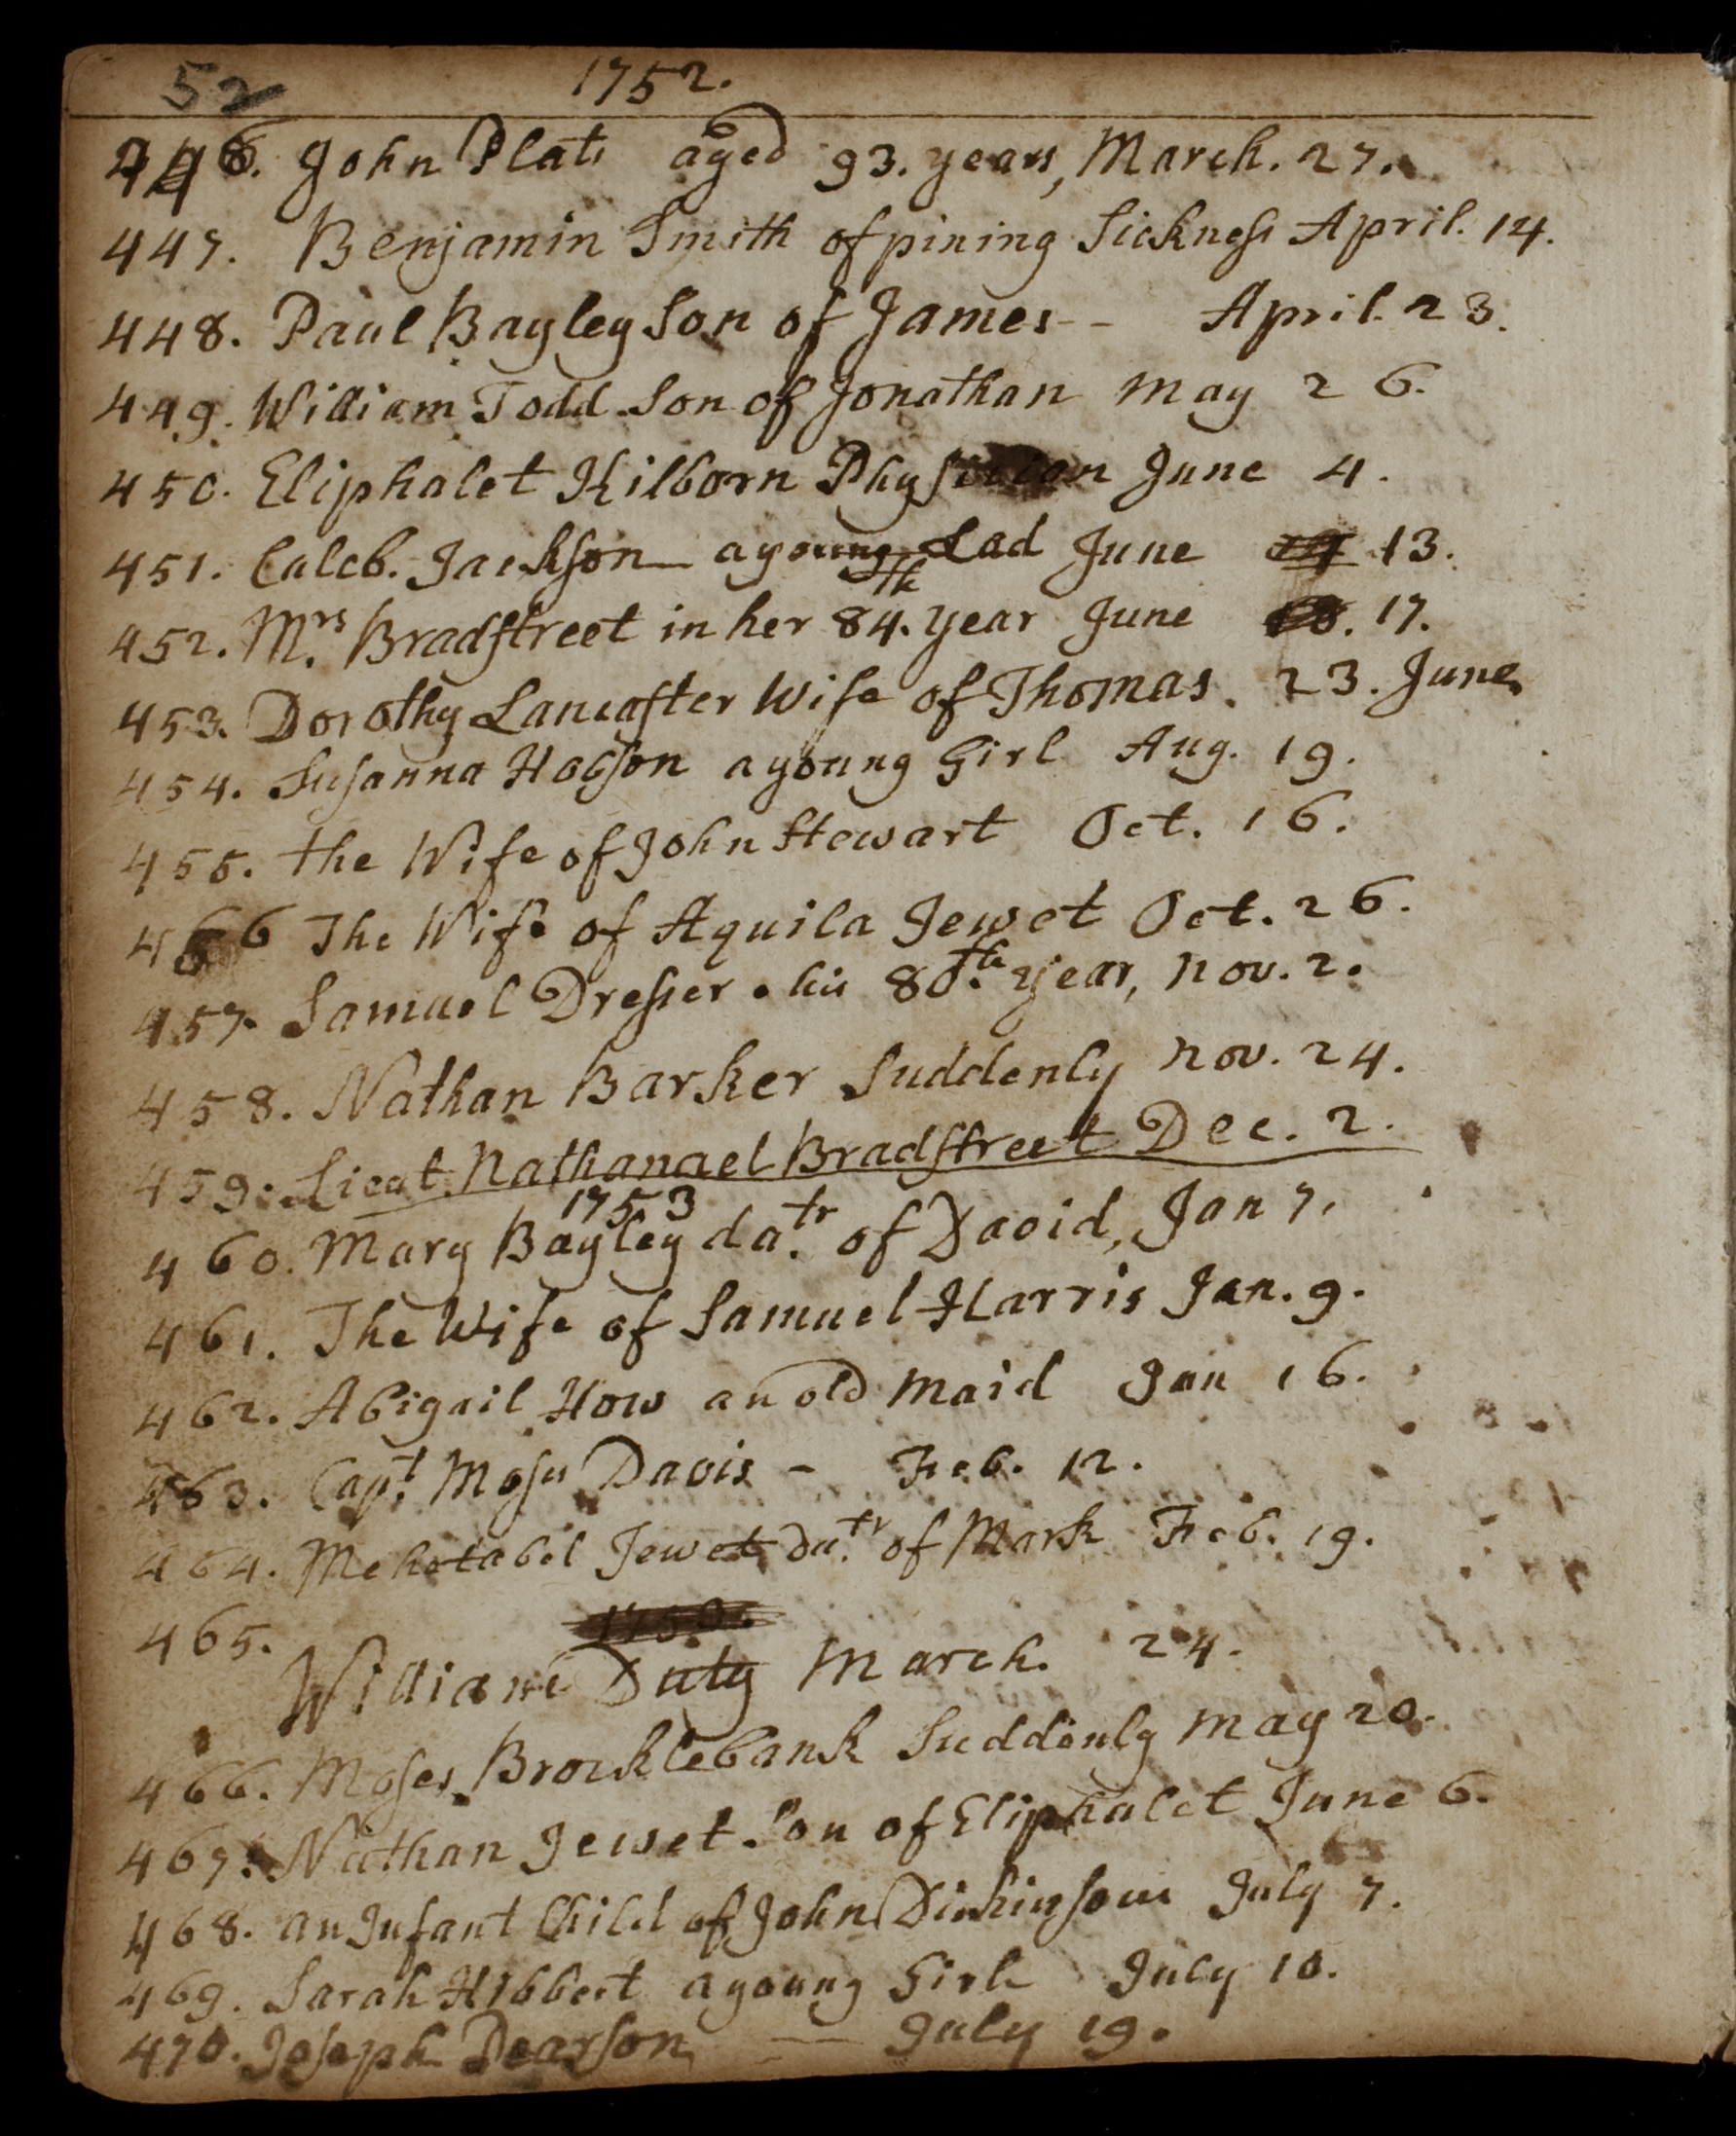 52 1752.
446. John Plats aged 93. years, March. 27.
447. Benjamin Smith of pining Sickness April. 14.
448. Paul Bayley Son of James - - April. 23.
449. William Todd Son of Jonathan may 26.
450. Eliphalet Kilborn Physician June 4.
451. Caleb. Jackson a young Lad June 13.
452. Mrs. Bradstreet in her 84.th year June 17.
453. Dorothy Lancaster Wife of Thomas. 23. June.
454. Susanna Hobson a young Girl Aug. 19.
455. the Wife of John Stewart Oct. 16.
456 The Wife of Aquila Jewet Oct. 26.
457. Samuel Dresser. his 80.th year, nov. 2.
458. Nathan Barker Suddenly nov. 24.
459. Lieut. Nathanael Bradstreet Dec. 2.
1753
460. Mary Bayley da.tr of David, Jan 7.
461. The Wife of Samuel Harris Jan. 9.
462. Abigail How an old maid Jan 16.
463. Capt. Moses Davis - Feb. 12.
464. Mehetabel Jewet da.tr of Mark Feb. 19.
465.
William Duty March. 24.
466. Moses Brocklebank Suddenly may 20.
467. Nathan Jewet Son of Eliphalet June 6.
468. an Infant Child of John Dickinson July 7.
469. Sarah Hibbert a young Girl July 10.
470. Joseph Pearson — July 19.